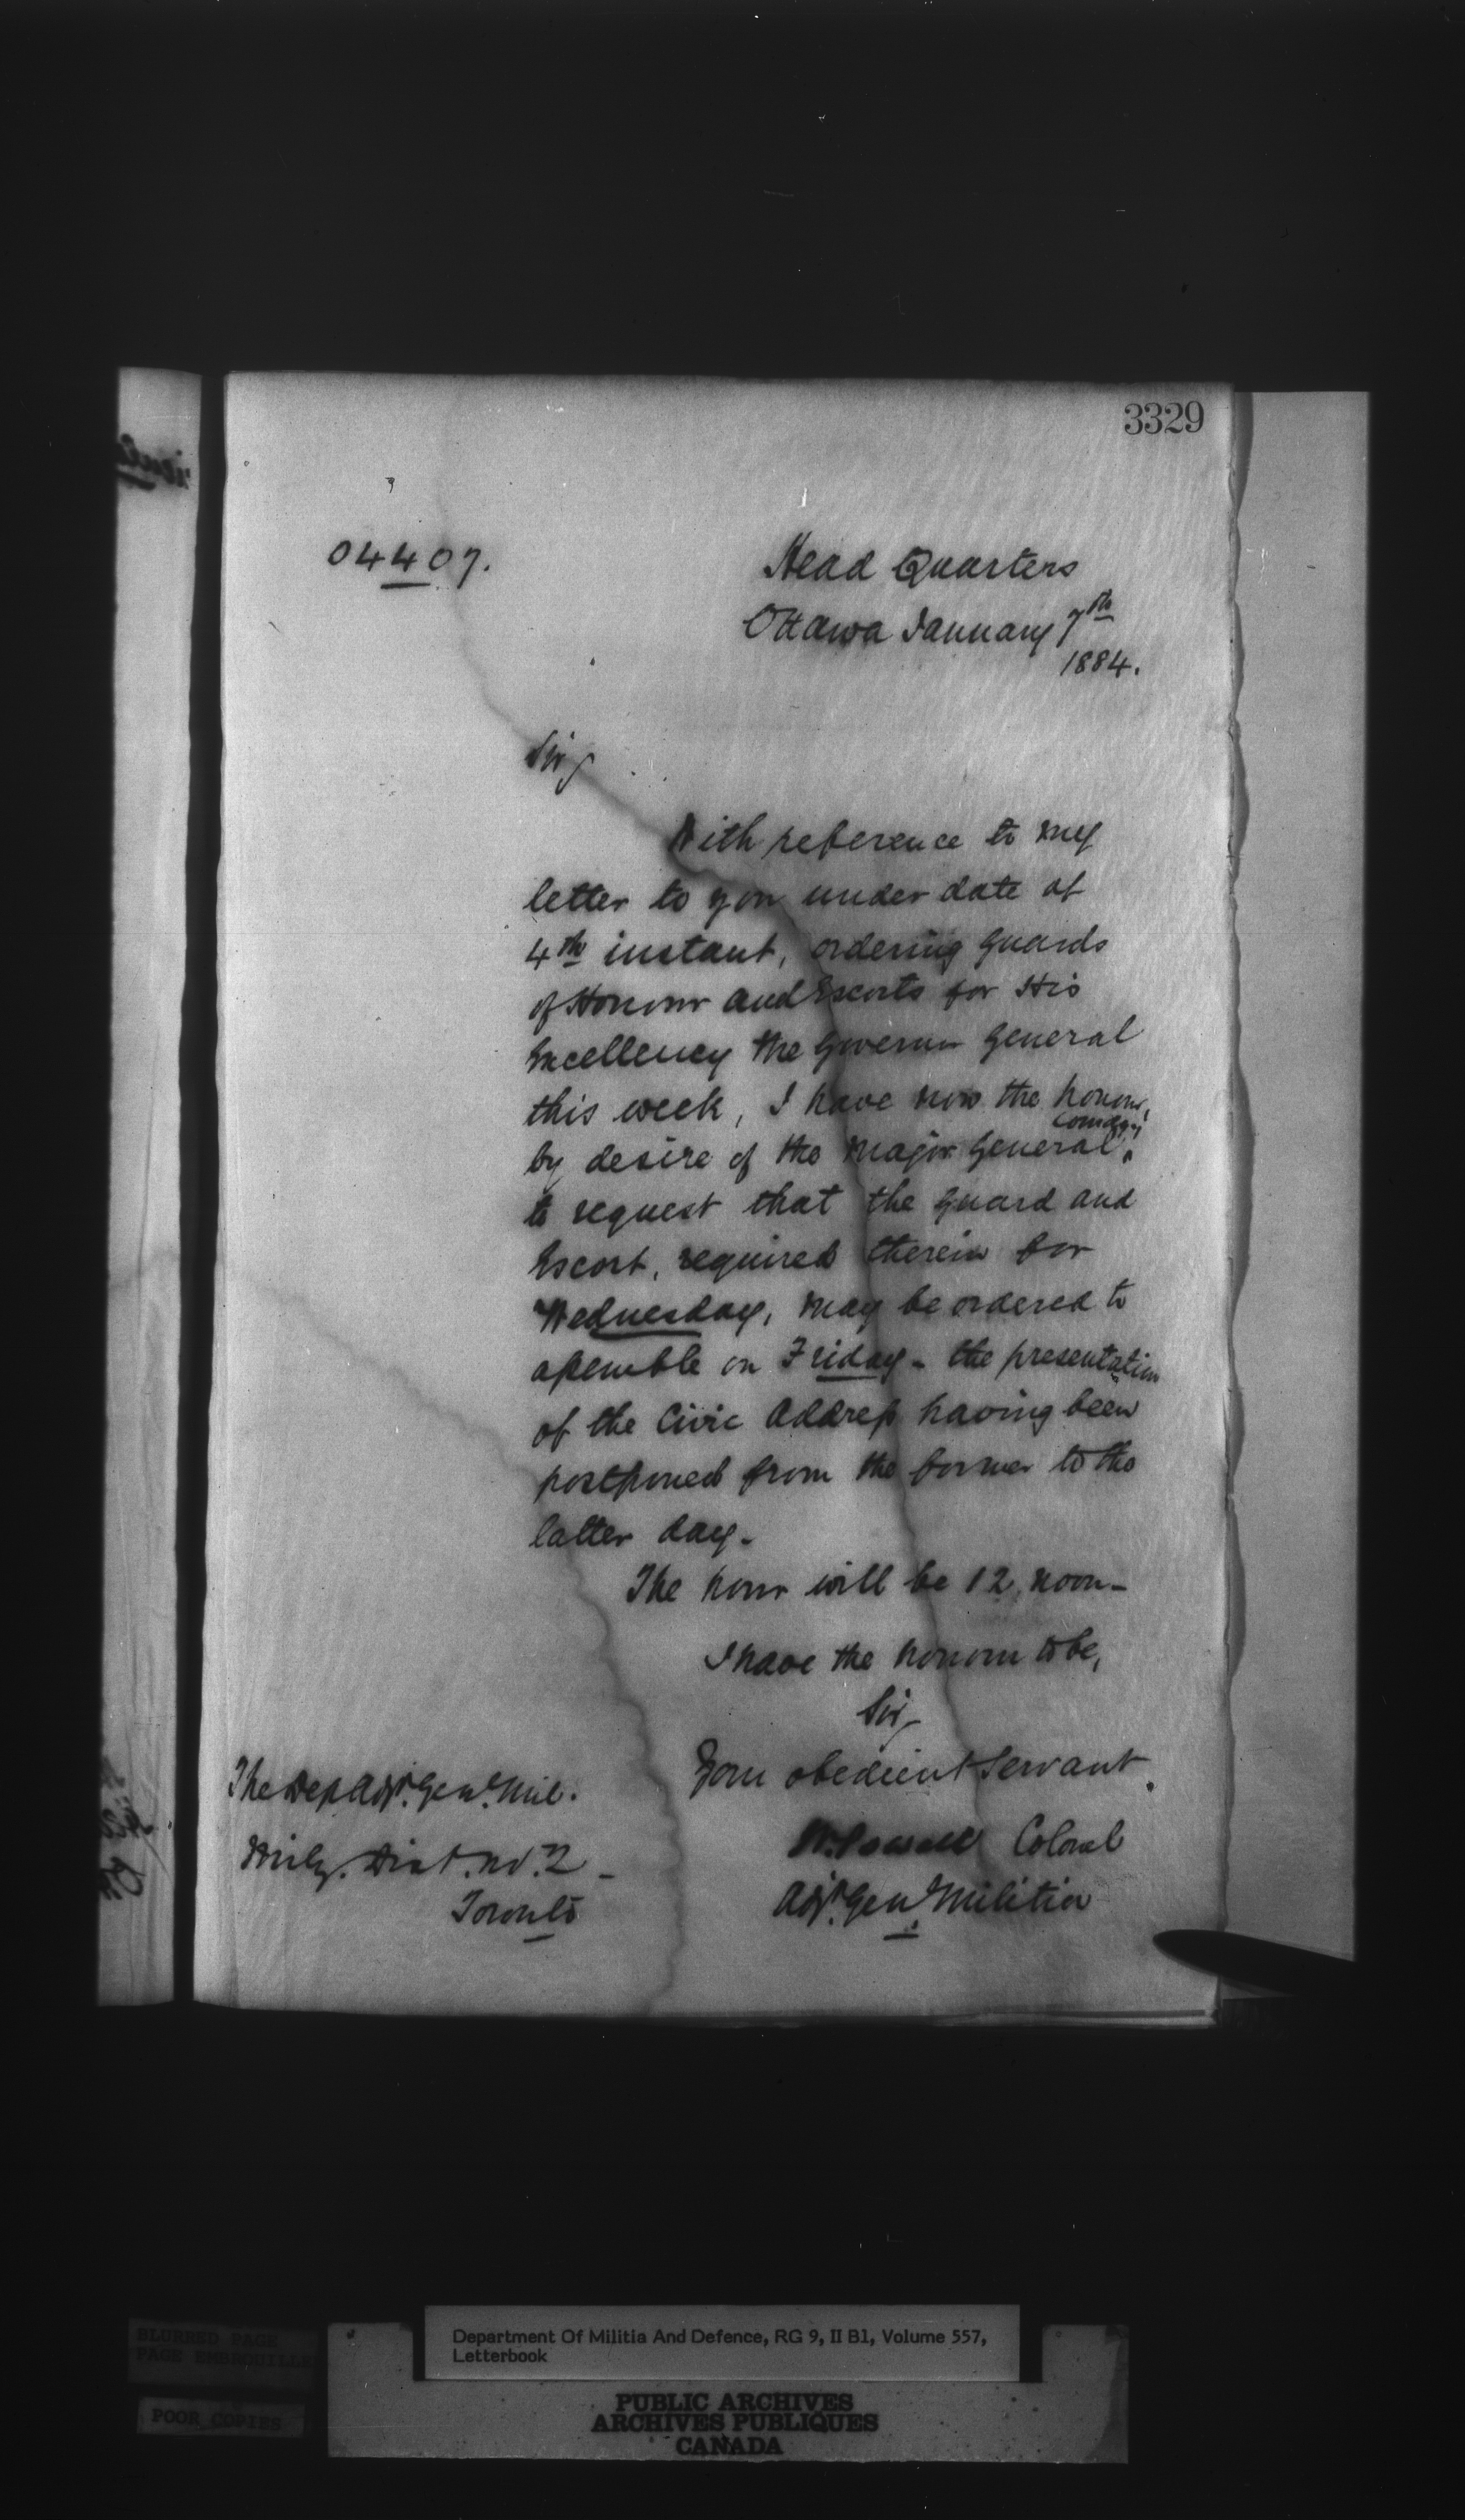 3329
04407.
Head Quarters
Ottawa January 7th
1884.
Sir,
With reference to my
letter to you under date of
4th instant, ordering Guards
of Honour and Escorts for His
Excellency the Governor General
this week, I have now the honour,
by desire of the Major General Comdg.,
to request that the Guard and
Escort, required therein for
Wednesday, may be ordered to
assemble on Friday - the presentation
of the Civic Address having been
postponed from the former to the
latter day -
The hour will be 12 noon -
I have the honour to be,
Sir,
Your obedient Servant.
W. Powell Colonel
Adjt. Genl. Militia
The Dep Adjt. Genl. Mil.
Mily. Dist. No. 2 -
Toronto
BLURRED PAGE
PAGE EMBROUILLEE
POOR COPIES
Department Of Militia And Defence, RG 9, II B1, Volume 557,
Letterbook
PUBLIC ARCHIVES
ARCHIVES PUBLIQUES
CANADA